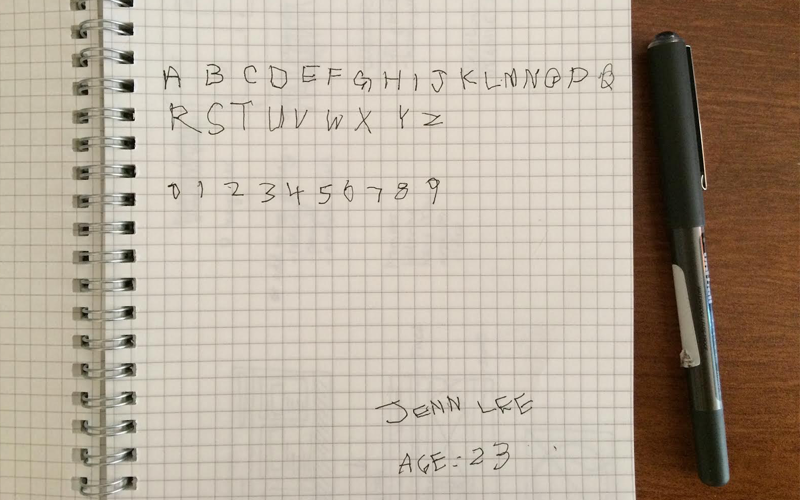 A B C D E F G H I J K L M N O P Q
R S T U V W X Y Z
0 1 2 3 4 5 6 7 8 9
JENN LEE
AGE: 23